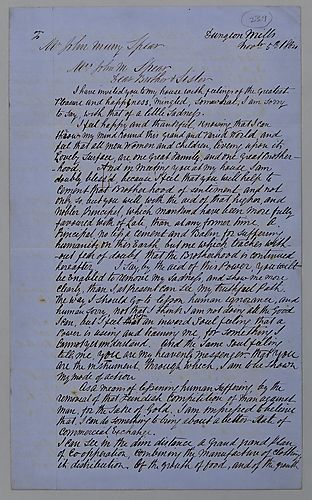 234
Dungeon Mills
To Mr John Murry Spear Novbr 5th 18
Mrs John M. Spear
Dear Brother & Sister
I have invited you to my house with feelings of the greatest
Pleasure and happiness, mingled, somewhat, I am sorry
to say, with that of a little Sadness.
I feel happy and thankful, knowing that I can
throw my mind round this grand and varied World, and
feel that all men Women and children, living upon its
Lovely Surface, are one Great Family, and one great Brother-
hood. And my meeting you at my house, I am
doubly blessed, because I feel that you will help to
Cement that Brotherhood of Sentiment, and not
only so but you will with the aid of that higher, and
Nobler Principle, which mankind have been more fully
favoured with of late, than at any former time. A
Principle no less a Cordial and Balm for suffering
humanity on this Earth, but one which teaches with-
out fear of doubt that the Brotherhood is continued
hereafter. I say, by the aid of this Power, you will
be Enabled to remove my sadness, and show me more
clearly, than I at present can see my truthful Path.
the way I should Go to lessen human ignorance, and
human Sorrow, not that I think I am not doing all the Good
I can, but I feel an inward Soul feeling that a
Power is using and training me for Something I
cannot yet understand. And the same Soul feeling
tells me, you are my heavenly messenger, that you
are the instrument, through which, I am to be shown
my mode of action.
As a means of lessening human Suffering by the
removal of that Fiendish Competition of man against
man, for the Sake of Gold. I am impressed to believe
that I can do something to bring about a better State of
Commercial Exchange.
I can see in the dim distance, a grand grand Plan
of Co-operation, combining the manufacture of clothing,
its distribution, of the growth of food, and of the growth